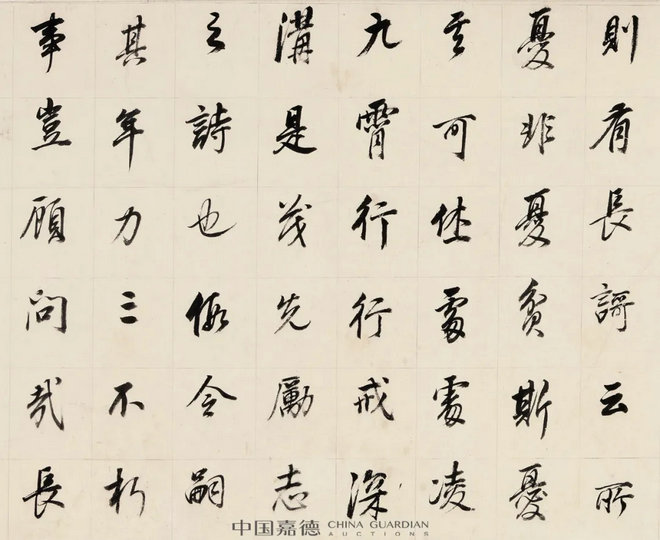 則有長謌云所
憂非憂貧斯憂
可休處處凌
九霄行行戒深
溝是茂先勵志
之詩也假令嗣
其年力三不朽
事豈顧問哉長
中国嘉德 CHINA GUARDIAN AUCTIONS